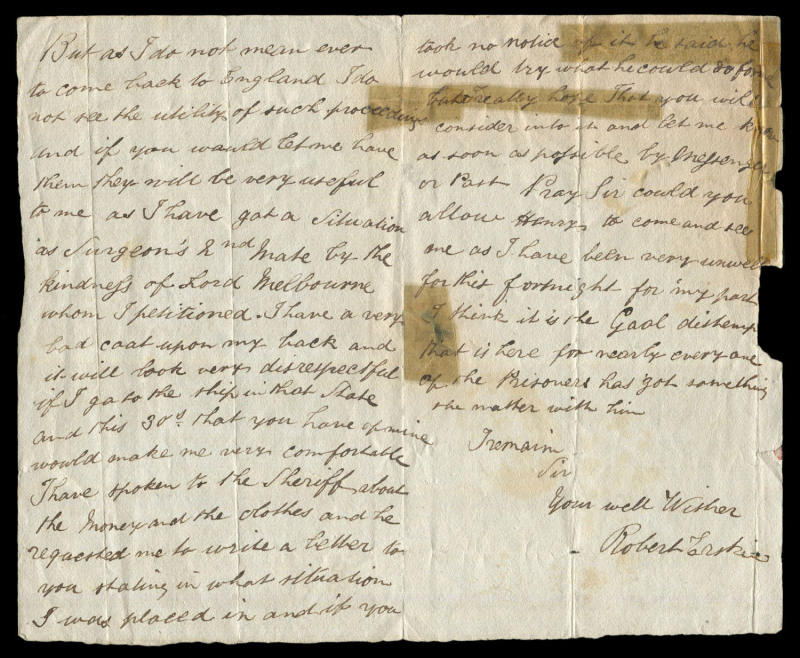 But as I do not mean ever
to come back to England I do
not see the utility of such proceedings
and if you would let me have
them they will be very useful
to me as I have got a Situation
as Surgeon's 2nd Mate by the
kindness of Lord Melbourne
whom I petitioned. I have a very
bad coat upon my back and
it will look very disrespectful
if I go to the ship in that State
and this 30s that you have of mine
would make me very comfortable
I have spoken to the Sheriff about
the Money and the clothes and he
requested me to write a letter to
you stating in what situation
I was placed in and if you
took no notid of it he said he
would try what he could do for
but really hope That you will
consider into it and let me know
as soon as possible by Messenger
or Post Pray Sir could you
allow Henry to come and see
me as I have been very unwell
for this fortnight for my part
I think it is the Gaol distemp
that is here for nearly every one
of the Prisoners has got something
the matter with him
I remain
Sir
Your well Wisher
Robert Erskie